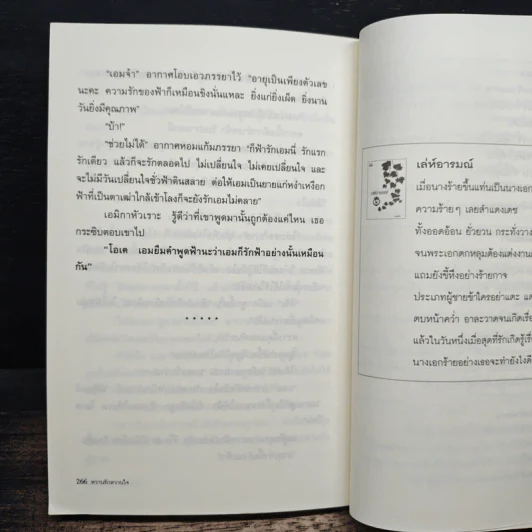 “เอมจ๋า” อากาศโอบเอวภรรยาไว้ “อายุเป็นเพียงตัวเลข
นะคะ ความรักของฟ้าก็เหมือนขิงนั่นแหละ ยิ่งแก่ยิ่งเผ็ด ยิ่งนาน
วันยิ่งมีคุณภาพ”
“บ้า!”
“ช่วยไม่ได้” อากาศหอมแก้มภรรยา “ก็ฟ้ารักเอมนี่ รักแรก
รักเดียว แล้วก็จะรักตลอดไป ไม่เปลี่ยนใจ ไม่เคยเปลี่ยนใจ และ
จะไม่มีวันเปลี่ยนใจชั่วฟ้าดินสลาย ต่อให้เอมเป็นยายแก่หงำเหงือก
ฟ้าที่เป็นตาเฒ่าใกล้เข้าโลงก็จะยังรักเอมไม่คลาย”
เอมิกาหัวเราะ รู้ดีว่าที่เขาพูดมานั้นถูกต้องแค่ไหน เธอ
กระซิบตอบเขาไป
“โอเค เอมยืมคำพูดฟ้านะว่าเอมก็รักฟ้าอย่างนั้นเหมือน
กัน”
.....
266 หวานรักหวานใจ
เล่ห์อารมณ์
เมื่อนางร้ายขึ้นแท่นเป็นนางเอก
ความร้ายๆ เลยสำแดงเดช
ทั้งออดอ้อน ยั่วยวน กระทั่งวาง
จนพระเอกตกหลุมต้องแต่งงาน
แถมยังขี้หึงอย่างร้ายกาจ
ประเภทผู้ชายข้าใครอย่าแตะ
ตบหน้าคว่ำ อาละวาดจนเกิดเรื่อ
แล้วในวันหนึ่งเมื่อสุดที่รักเกิดรู้เรื่
นางเอกร้ายอย่างเธอจะทำยังไงดี